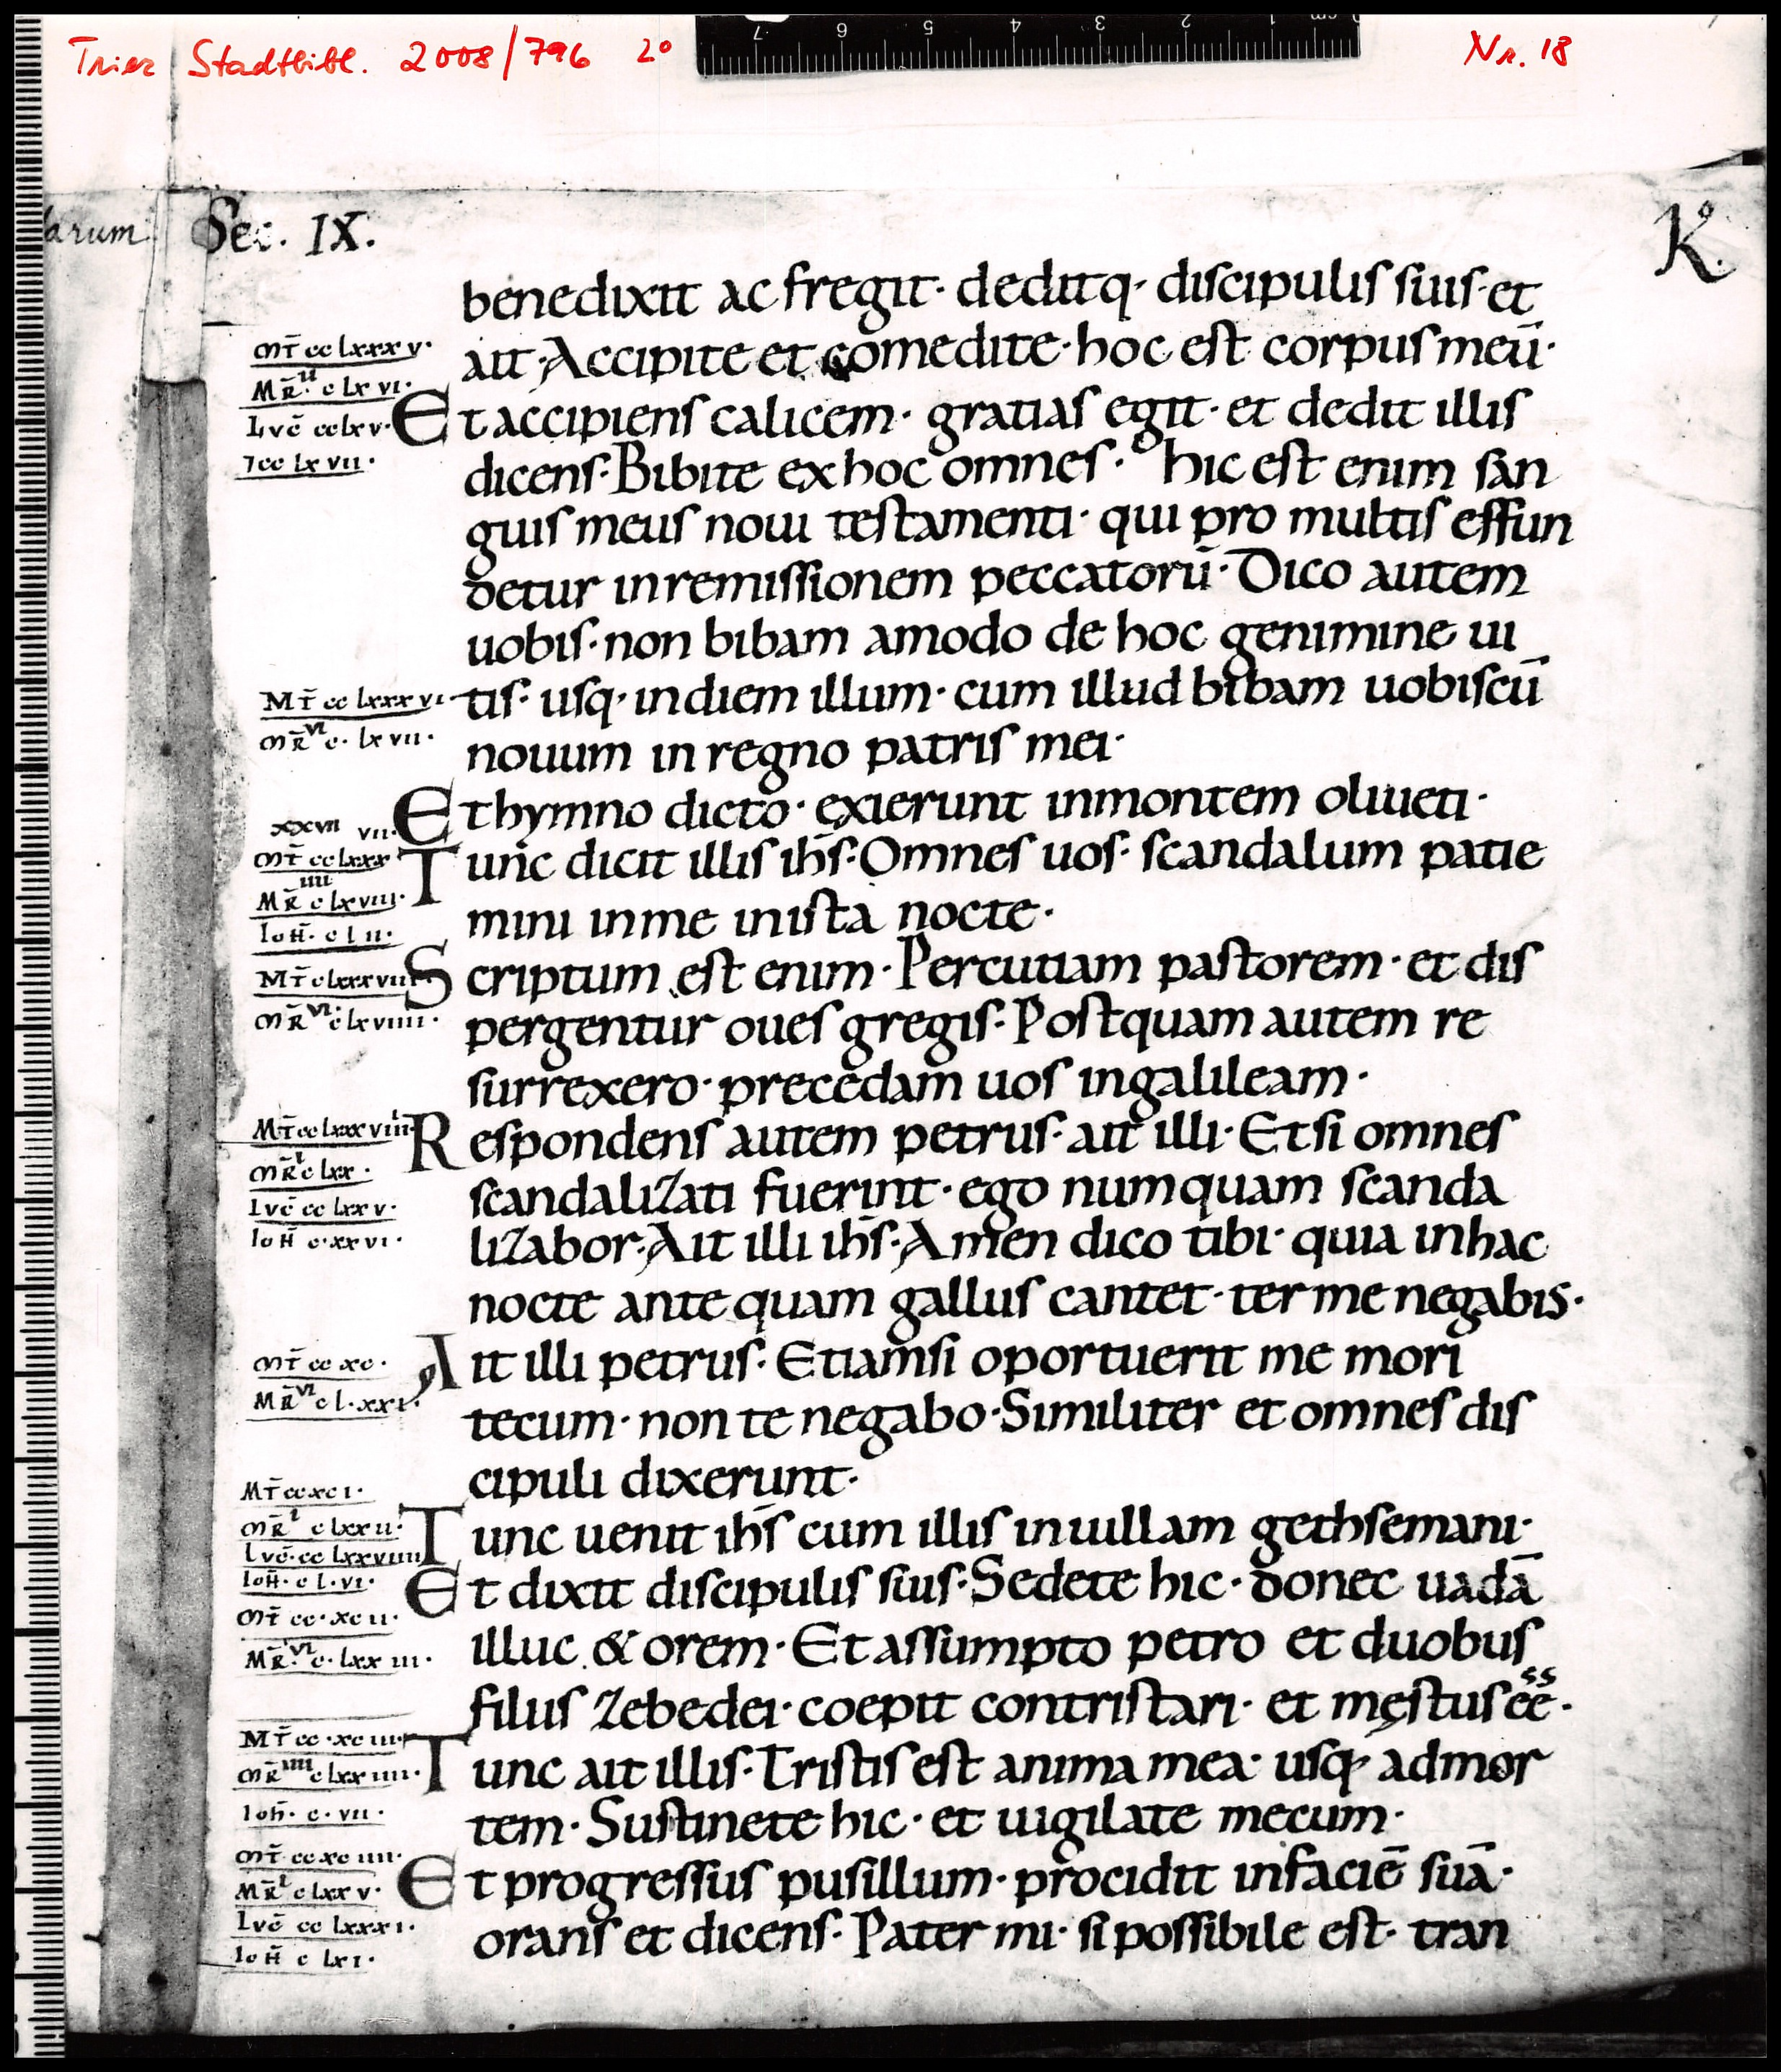 Trier Stadtbibl. 2008/796 2° Nr. 18
7 6 5 4 3 2 1 0 cm
arum Sec. IX. K°.
benedixit ac fregit· deditq· discipulis suis· et
ait· Accipite et comedite· hoc est corpus meū·
Et accipiens calicem· gratias egit· et dedit illis
dicens· Bibite ex hoc omnes· hic est enim san
guis meus noui testamenti· qui pro multis effun
detur in remissionem peccatorū· Dico autem
uobis· non bibam amodo de hoc genimine ui
tis· usq· in diem illum· cum illud bibam uobiscū
nouum in regno patris mei·
Et hymno dicto· exierunt in montem oliueti·
Tunc dicit illis ihs̄· Omnes uos· scandalum patie
mini in me in ista nocte·
Scriptum est enim· Percutiam pastorem· et dis
pergentur oues gregis· Postquam autem re
surrexero· precedam uos in galileam·
Respondens autem petrus· ait illi· Et si omnes
scandalizati fuerint· ego numquam scanda
lizabor· Ait illi ihs̄· Amen dico tibi· quia in hac
nocte ante quam gallus cantet· ter me negabis·
Ait illi petrus· Etiamsi oportuerit me mori
tecum· non te negabo· Similiter et omnes dis
cipuli dixerunt·
Tunc uenit ihs̄ cum illis in uillam gethsemani·
Et dixit discipulis suis· Sedete hic· donec uadā
illuc & orem· Et assumpto petro et duobus
filiis zebedei· coepit contristari· et męstus ēē·
Tunc ait illis· Tristis est anima mea· usq· ad mor
tem· Sustinete hic· et uigilate mecum·
Et progressus pusillum· procidit in faciē suā·
orans et dicens· Pater mi· si possibile est· tran
mt̄ cc lxxx v·
mr̄ ii c lx vi·
Lvc̄ cc lx v·
cc lx vii·
mt̄ cc lxxx vi·
mr̄ vi c· lx vii·
xxvii vii·
mt̄ cc lxxx
mr̄ iiii c lx viii·
Ioh̄· c l ii·
mt̄ c lxxx viii
mr̄ vi c lx viiii·
mt̄ cc lxxx viiii
mr̄ i c lxx·
Lvc̄ cc lxx v·
Ioh̄ c· xx vi·
mt̄ cc xc·
mr̄ vi c l· xx i·
mt̄ cc xc i·
mr̄ i c lxx ii·
Lvc̄· cc lxx viiii
Ioh̄· c l· vi·
mt̄ cc· xc ii·
mr̄ vi c· lxx iii·
mt̄ cc· xc iii·
mr̄ iiii c lxx iiii·
Ioh̄· c· vii·
mt̄ cc xc iiii·
mr̄ i c lxx v·
Lvc̄ cc lxxx i·
Ioh̄ c lx i·